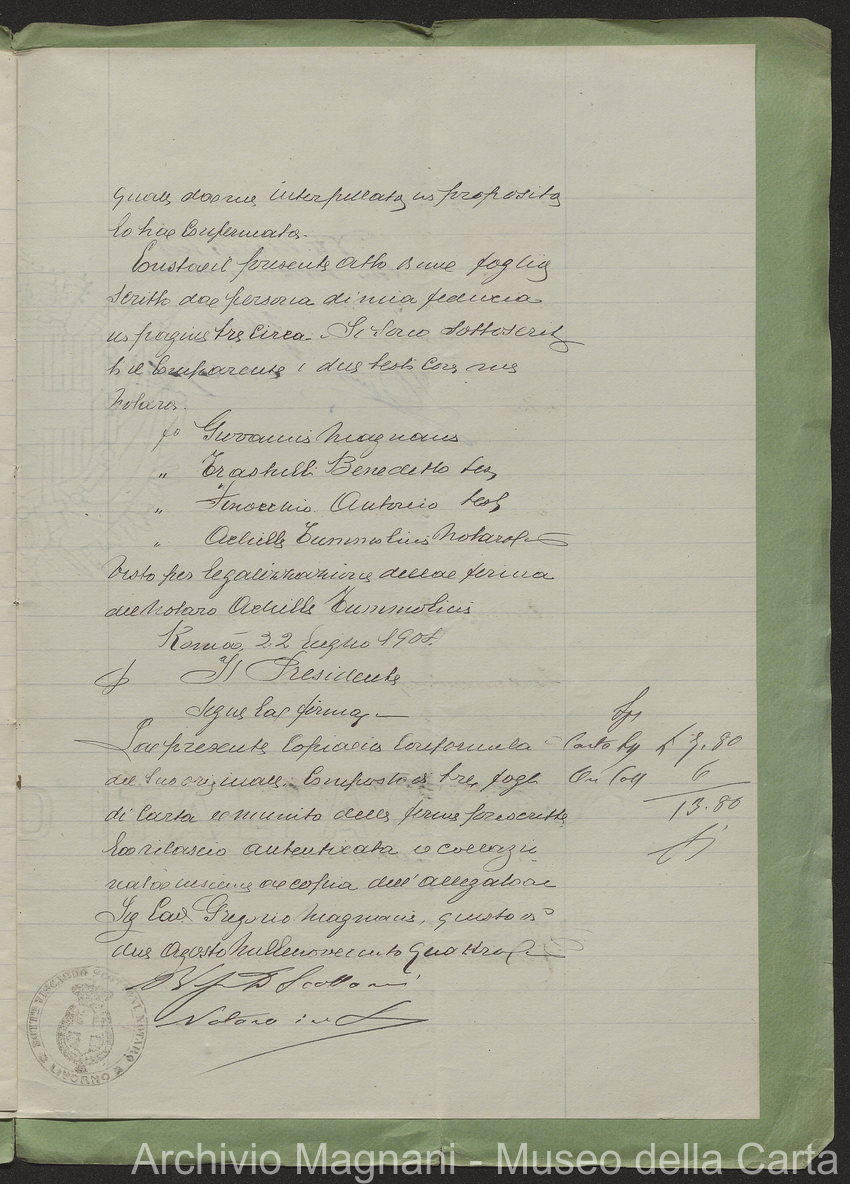 quale da me interpellato in proposito
lo ha confermato.
Consta il presente atto di un foglio
scritto da persona di mia fiducia
in pagine tre circa. Si sono sottoscrit
ti il comparente i due testi con me
Notaro.
fo Giovanni Magnani
" Benedetto tes
" Finocchio Antonio tes
" Achille Tummolini Notaro
Visto per legalizzazione della firma
del Notaro Achille Tummolini
Roma, 22 Luglio 1904.
Il Presidente
Segue la firma
La presente copia è conforme
al suo originale, composto di tre fogli
di carta e munito delle firme prescritte
La rilascio autenticata e collazio
nata insieme a copia dell'allegato al
Sig Cav. Gregorio Magnani, questo dì
due Agosto Millenovecento quattro
Scotto
Notaro in L
Sp
Carta L 7.80
Coll 6
13.80
NOTARO
LIVORNO
Archivio Magnani - Museo della Carta